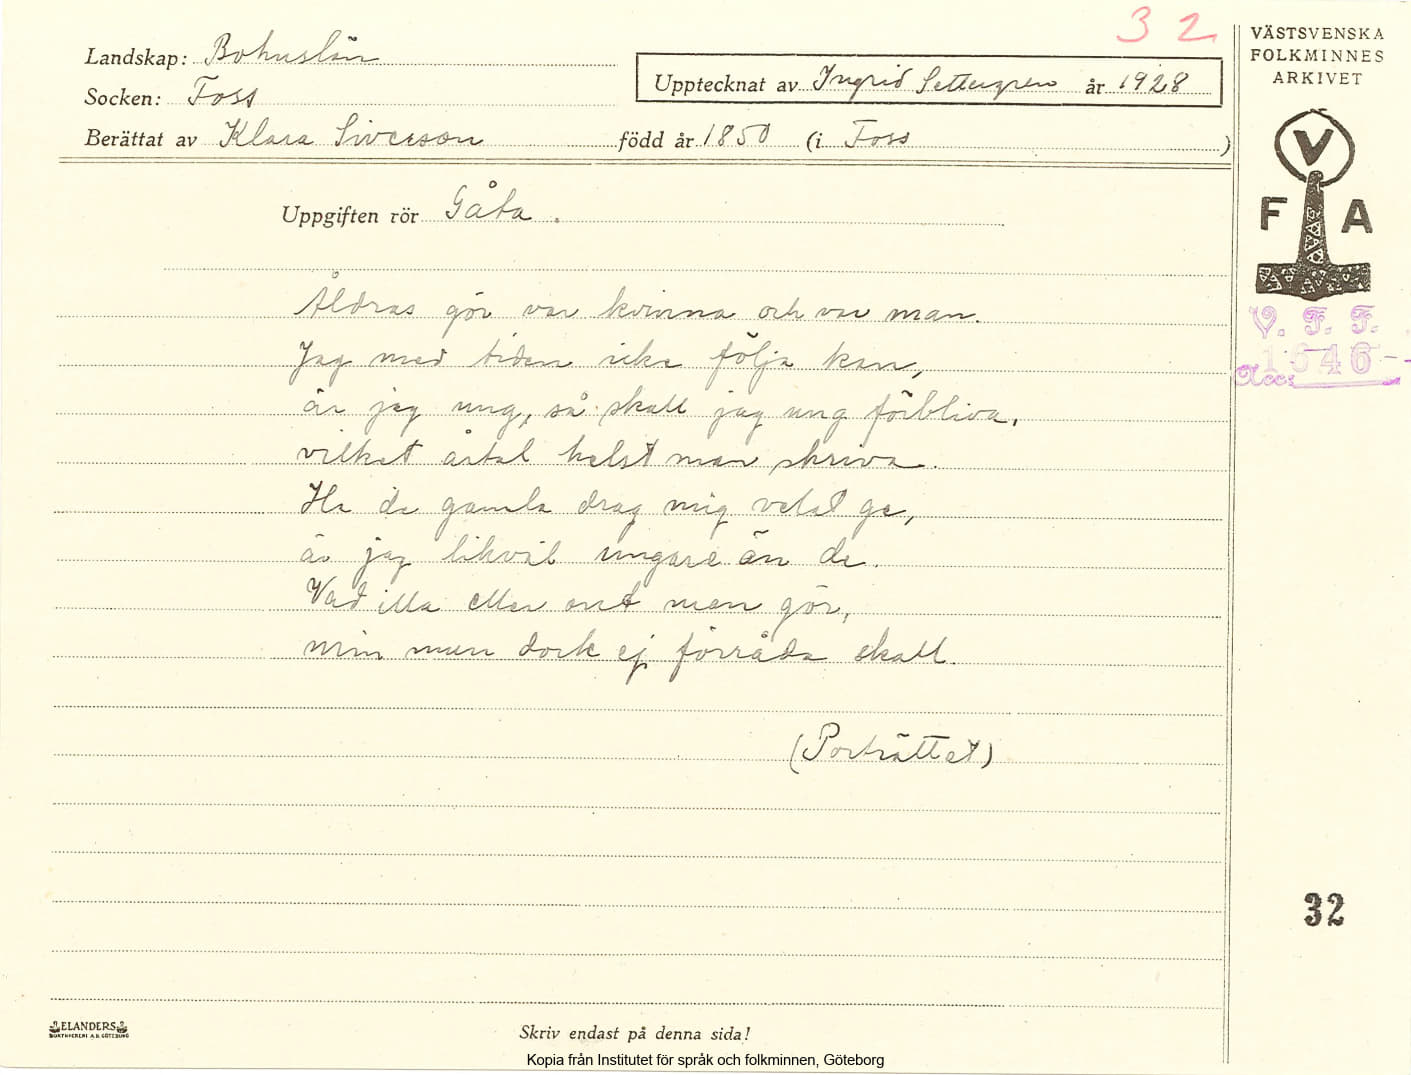 32
Landskap: Bohuslän
Socken: Foss
Upptecknat av Ingrid Settergren år 1928
Berättat av Klara Siverson född år 1850 (i Foss )
VÄSTSVENSKA
FOLKMINNES
ARKIVET
V
F A
V. F. F.
1646
Acc:
Uppgiften rör Gåta.
Åldras gör var kvinna och var man.
Jag med tiden icke följa kan,
är jag ung, så skall jag ung förbliva,
vilket årtal helst man skriva.
Ha de gamla drag mig velat ge,
är jag likväl ungare än de.
Vad illa eller ont man gör,
min mun dock ej förråda skall.
(Porträttet)
32
ELANDERS
BOKTRYCKERI A.B. GÖTEBORG
Skriv endast på denna sida!
Kopia från Institutet för språk och folkminnen, Göteborg